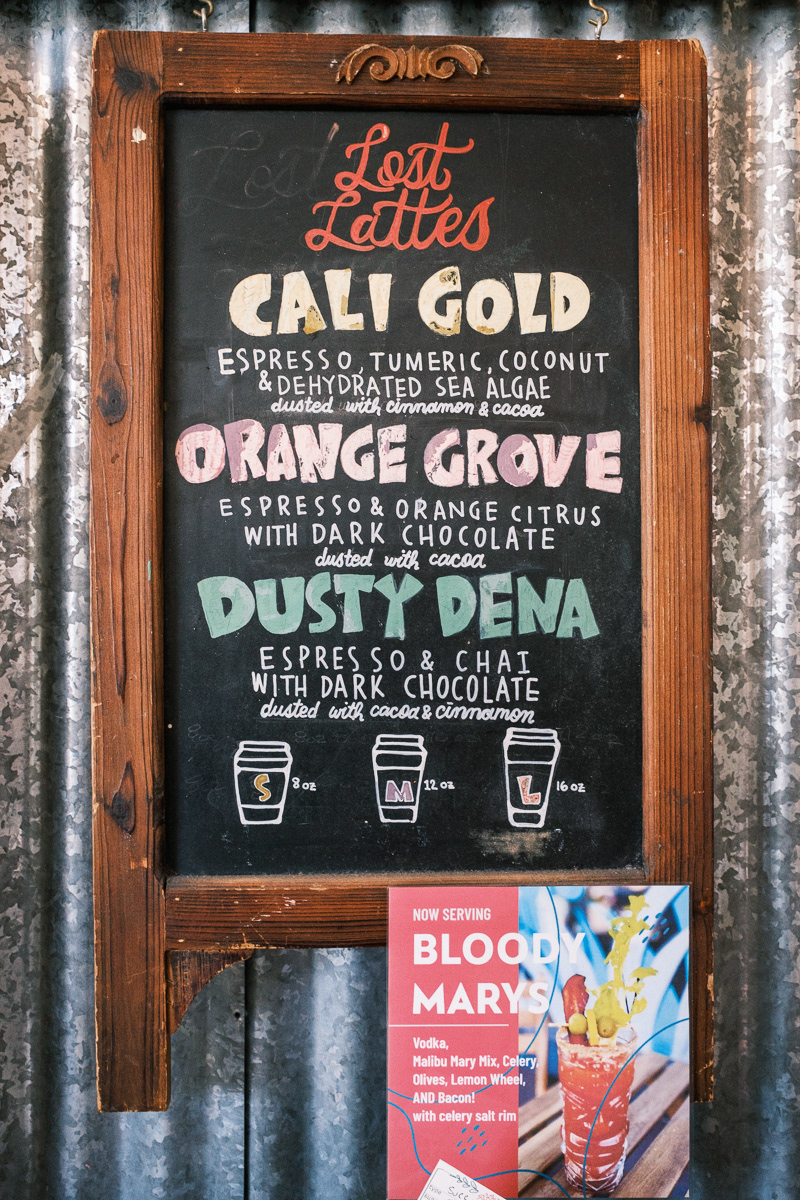 Lost
Lattes
CALI GOLD
ESPRESSO, TUMERIC, COCONUT
& DEHYDRATED SEA ALGAE
dusted with cinnamon & cacoa
ORANGE GROVE
ESPRESSO & ORANGE CITRUS
WITH DARK CHOCOLATE
dusted with cacoa
DUSTY DENA
ESPRESSO & CHAI
WITH DARK CHOCOLATE
dusted with cacoa & cinnamon
S 8 oz M 12 oz L 16 oz
NOW SERVING
BLOODY
MARYS
Vodka,
Malibu Mary Mix, Celery,
Olives, Lemon Wheel,
AND Bacon!
with celery salt rim